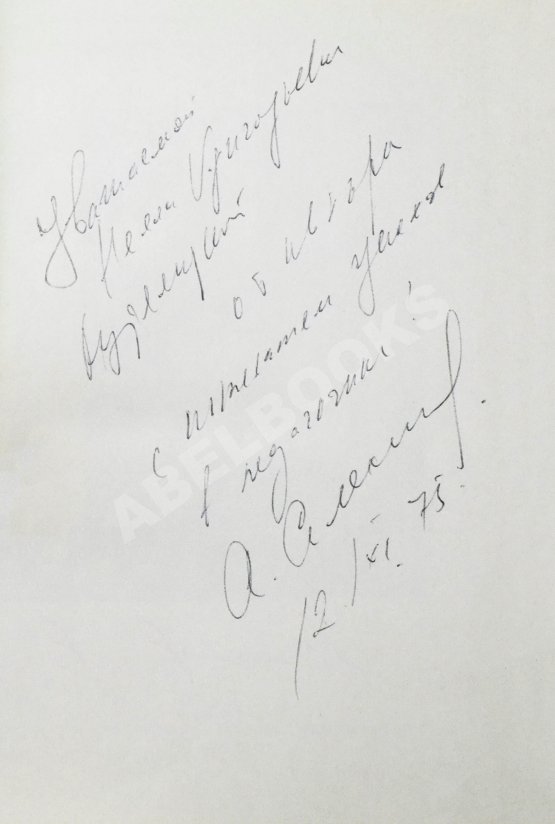 Уважаемой
Нелли Григорьевне
от автора
с пожеланием успехов
в педагогике!
А. Алехин.
12/XI.75.
ABELBOOKS